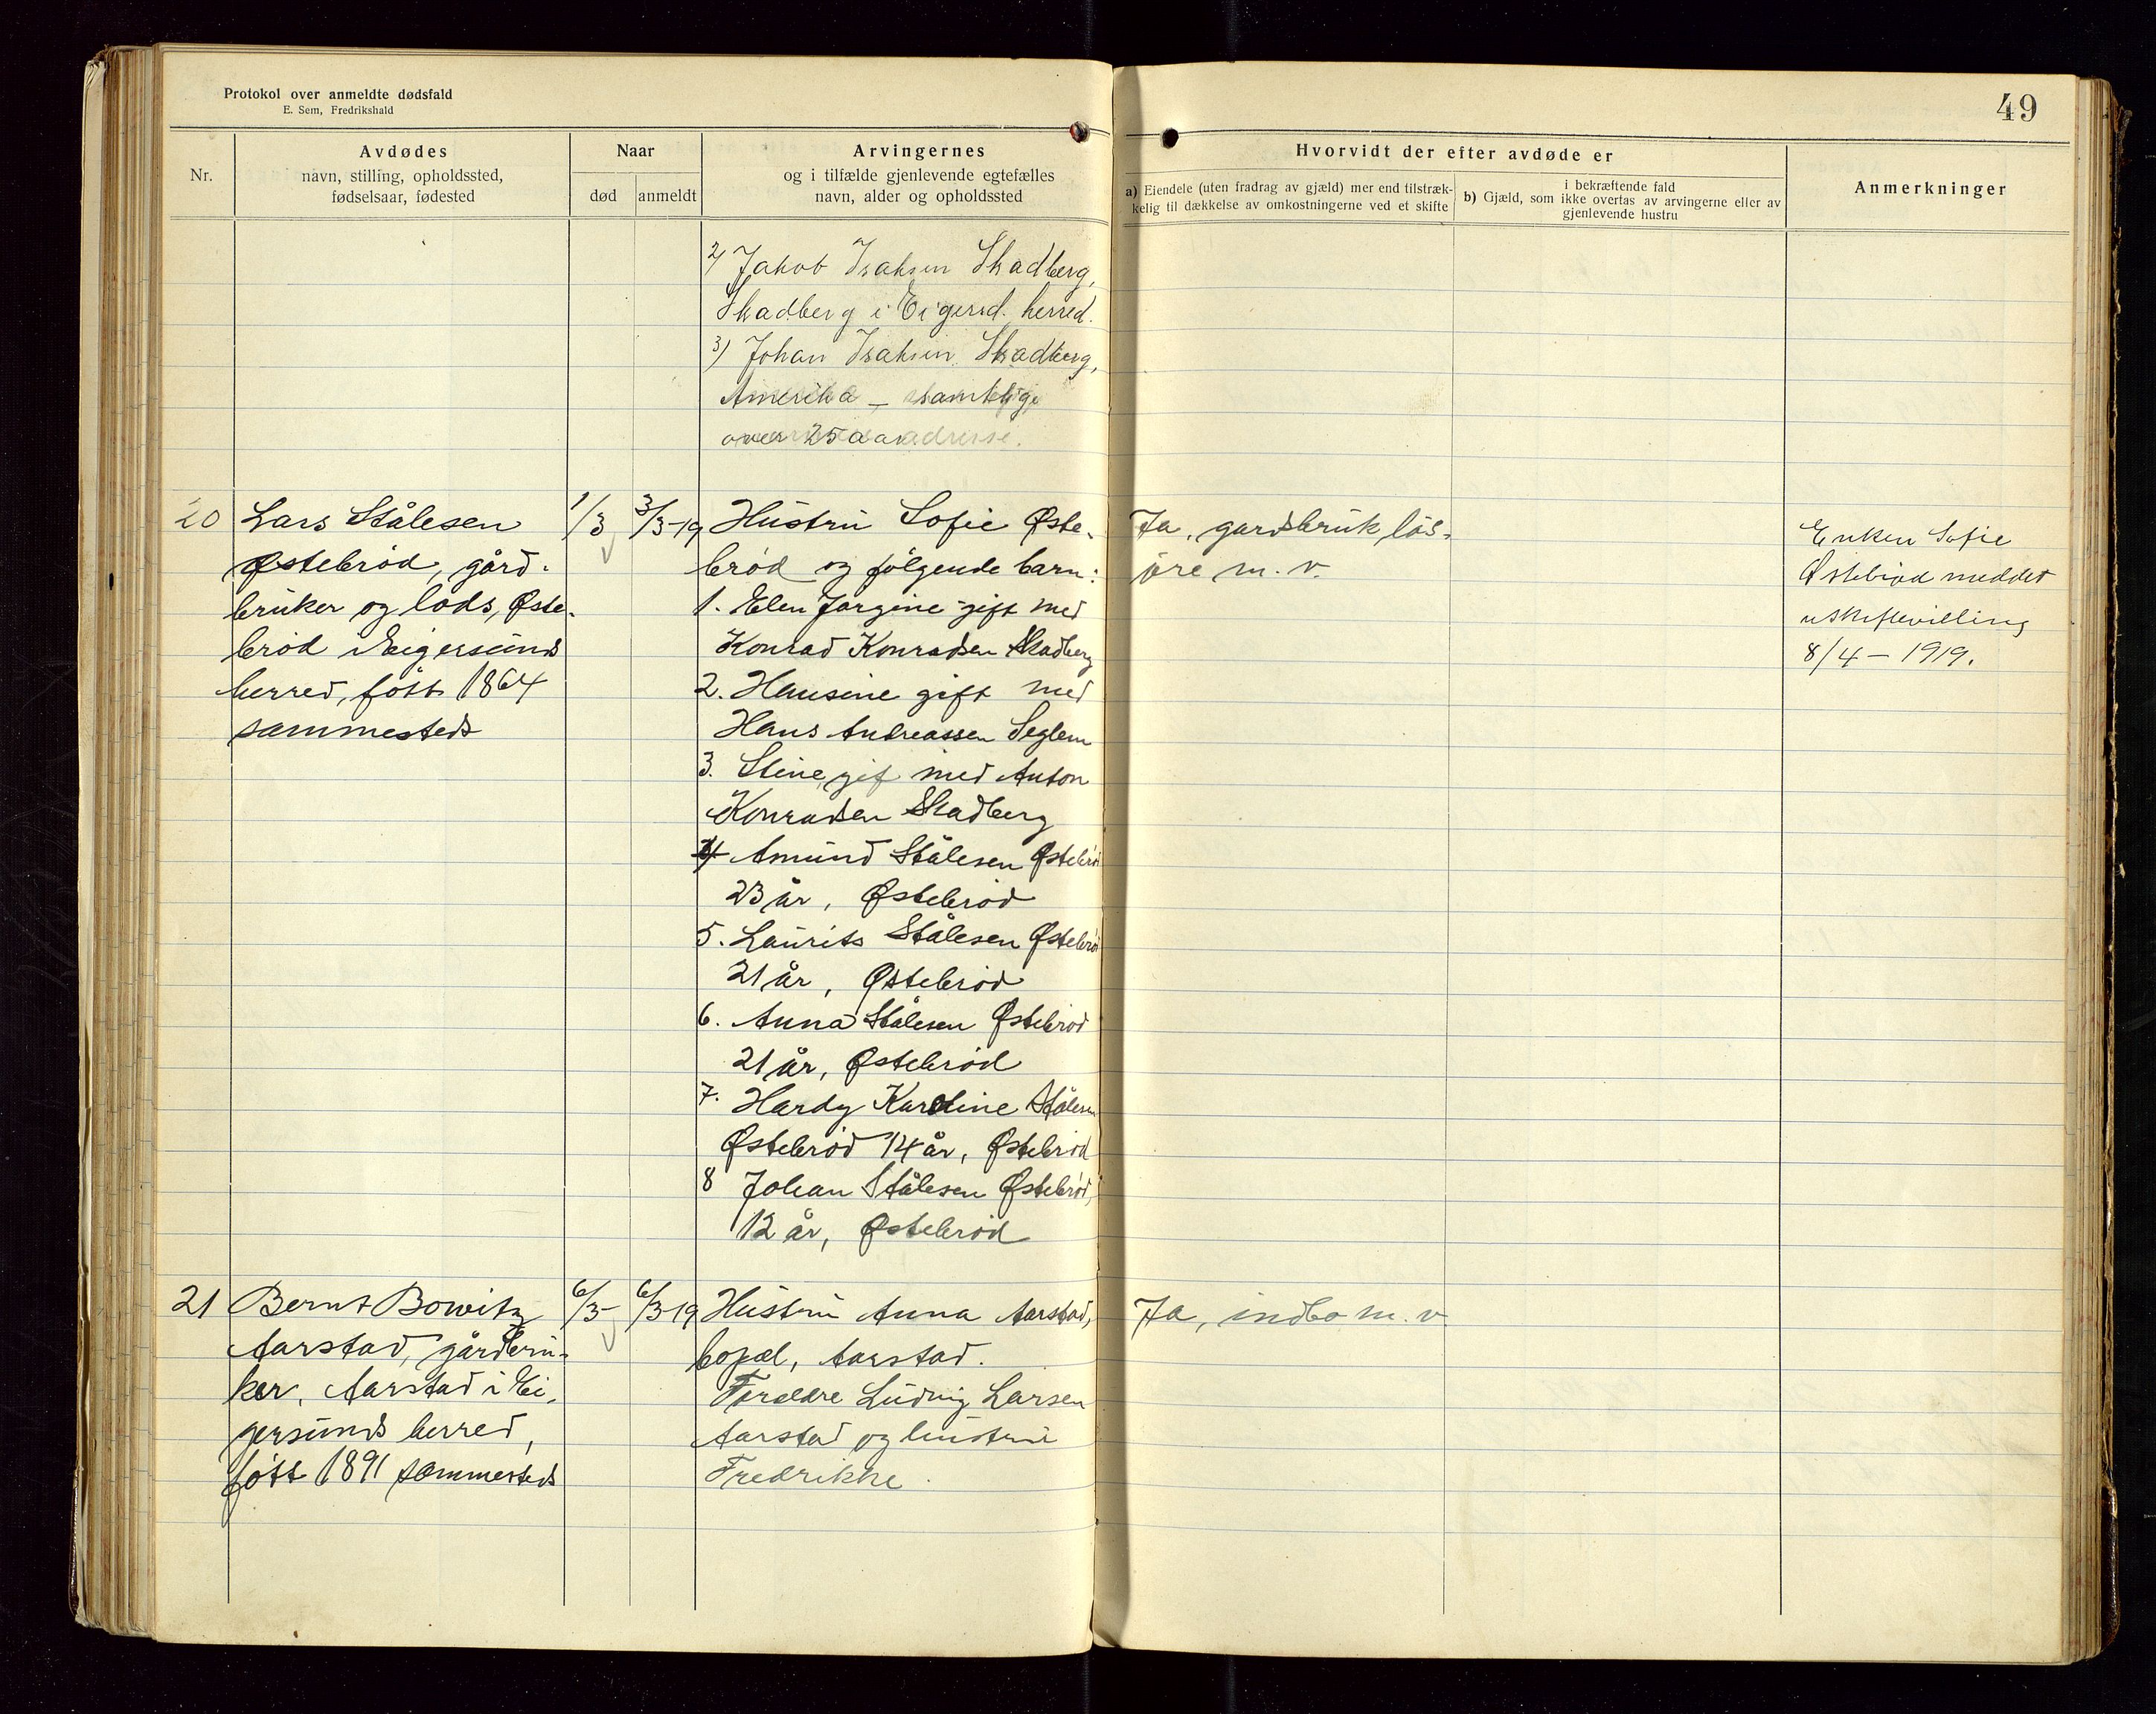 Protokol over anmeldte dødsfald
E. Sem, Fredrikshald
49
Nr.
Avdødes
navn, stilling, opholdssted,
fødselsaar, fødested
Naar
død
anmeldt
Arvingernes
og i tilfælde gjenlevende egtefælles
navn, alder og opholdssted
Hvorvidt der efter avdøde er
a) Eiendele (uten fradrag av gjæld) mer end tilstræk-
kelig til dækkelse av omkostningerne ved et skifte
i bekræftende fald
b) Gjæld, som ikke overtas av arvingerne eller av
gjenlevende hustru
Anmerkninger
2) Jakob Isaksen Skadberg,
Skadberg i Eigersd. herred.
3) Johan Isaksen Skadberg,
Amerika – samtlige
over 25 aar
20
Lars Stålesen
Østebrød, gård-
bruker og lods, Øste-
brød i Eigersunds
herred, født 1864
sammesteds
1/3
3/3-19
Hustru Sofie Øste-
brød og følgende barn:
1. Elen Jorgine gift med
Konrad Konradsen Skadberg
2. Hansine gift med
Hans Andreassen Seglem
3. Stine, gif med Anton
Konradsen Skadberg
4 Amund Stålesen Østebrød
23 år, Østebrød
5. Laurits Stålesen Østebrød
21 år, Østebrød
6. Anna Stålesen Østebrød
21 år, Østebrød
7. Hardy Karoline Stålesen
Østebrød 14 år, Østebrød
8 Johan Stålesen Østebrød,
12 år, Østebrød
Ja, gardsbruk løs-
øre m. v.
Enken Sofie
Østebrød meddelt
uskiftevilling
8/4 – 1919.
21
Bernt Bowitz
Aarstad, gårdbru-
ker, Aarstad i Ei-
gersunds herred,
født 1891 sammesteds
6/3-
6/3-19
Hustru Anna Aarstad,
bopæl, Aarstad.
Forældre Ludvig Larsen
Aarstad og hustru
Fredrikke.
Ja, indbo m. v.